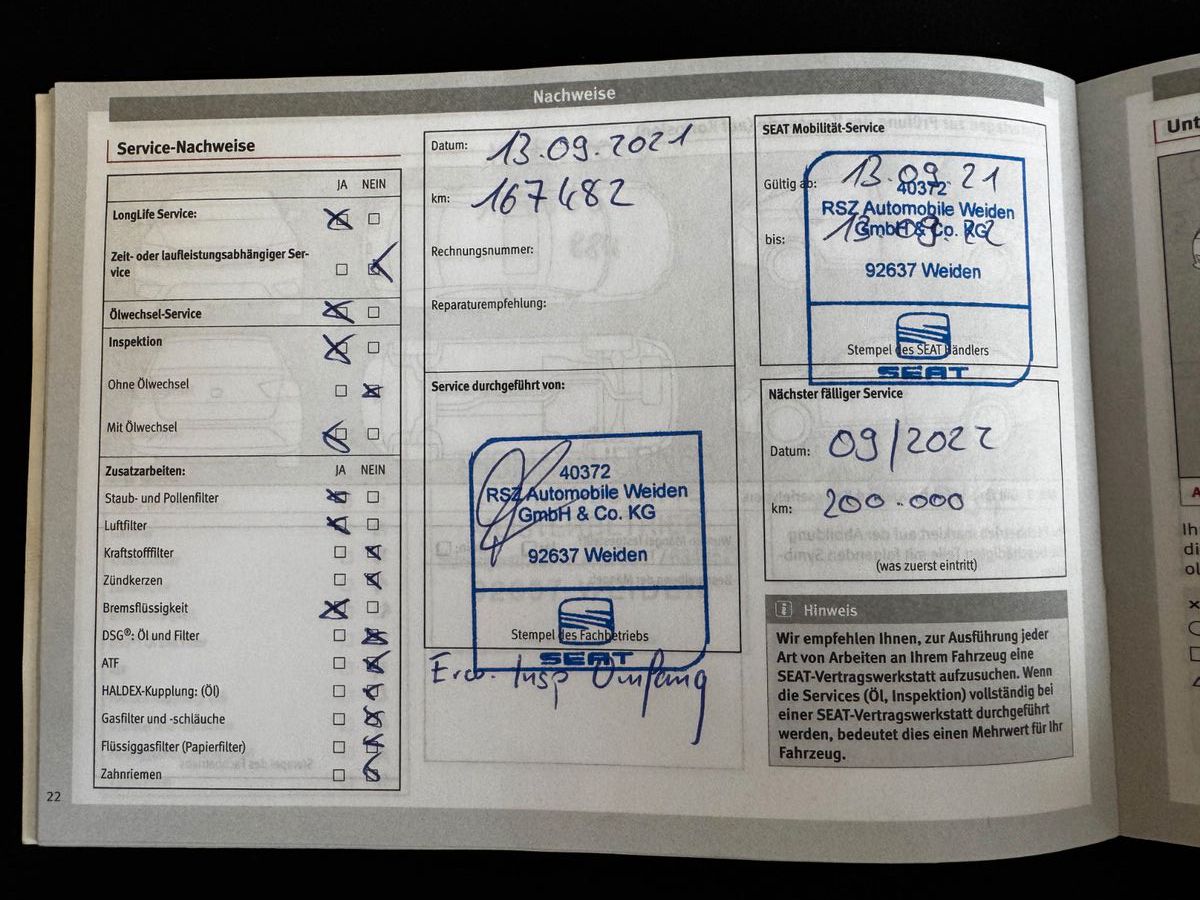 Nachweise
Service-Nachweise
JA NEIN
LongLife Service:
Zeit- oder laufleistungsabhängiger Ser-
vice
Ölwechsel-Service
Inspektion
Ohne Ölwechsel
Mit Ölwechsel
Zusatzarbeiten: JA NEIN
Staub- und Pollenfilter
Luftfilter
Kraftstofffilter
Zündkerzen
Bremsflüssigkeit
DSG®: Öl und Filter
ATF
HALDEX-Kupplung: (Öl)
Gasfilter und -schläuche
Flüssiggasfilter (Papierfilter)
Zahnriemen
22
Datum: 13.09.2021
km: 167482
Rechnungsnummer:
Reparaturempfehlung:
Service durchgeführt von:
40372
RSZ Automobile Weiden
GmbH & Co. KG
92637 Weiden
Stempel des Fachbetriebs
SEAT
Erw. Insp Umfang
SEAT Mobilität-Service
Gültig ab: 13.09.21
40372
RSZ Automobile Weiden
GmbH & Co. KG
bis: 13.09.22
92637 Weiden
Stempel des SEAT Händlers
SEAT
Nächster fälliger Service
Datum: 09/2022
km: 200.000
(was zuerst eintritt)
Hinweis
Wir empfehlen Ihnen, zur Ausführung jeder
Art von Arbeiten an Ihrem Fahrzeug eine
SEAT-Vertragswerkstatt aufzusuchen. Wenn
die Services (Öl, Inspektion) vollständig bei
einer SEAT-Vertragswerkstatt durchgeführt
werden, bedeutet dies einen Mehrwert für Ihr
Fahrzeug.
Unt
Ih
di
ol